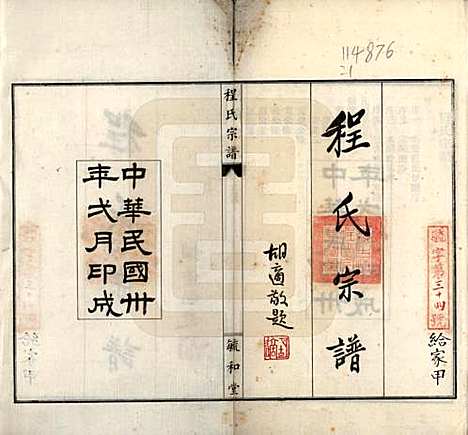 114876
程氏宗譜
胡適敬題
程氏宗譜
毓和堂
中華民國卅
年弍月印成
字第三十四號
給家甲